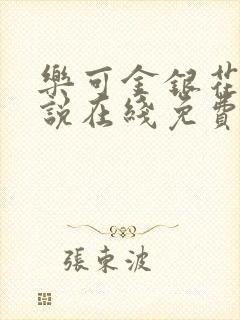 樂可金銀花
說在綫免費
張東波